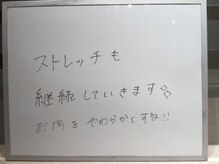 ストレッチも
継続していきます◇
お肉をやわらかくする!!